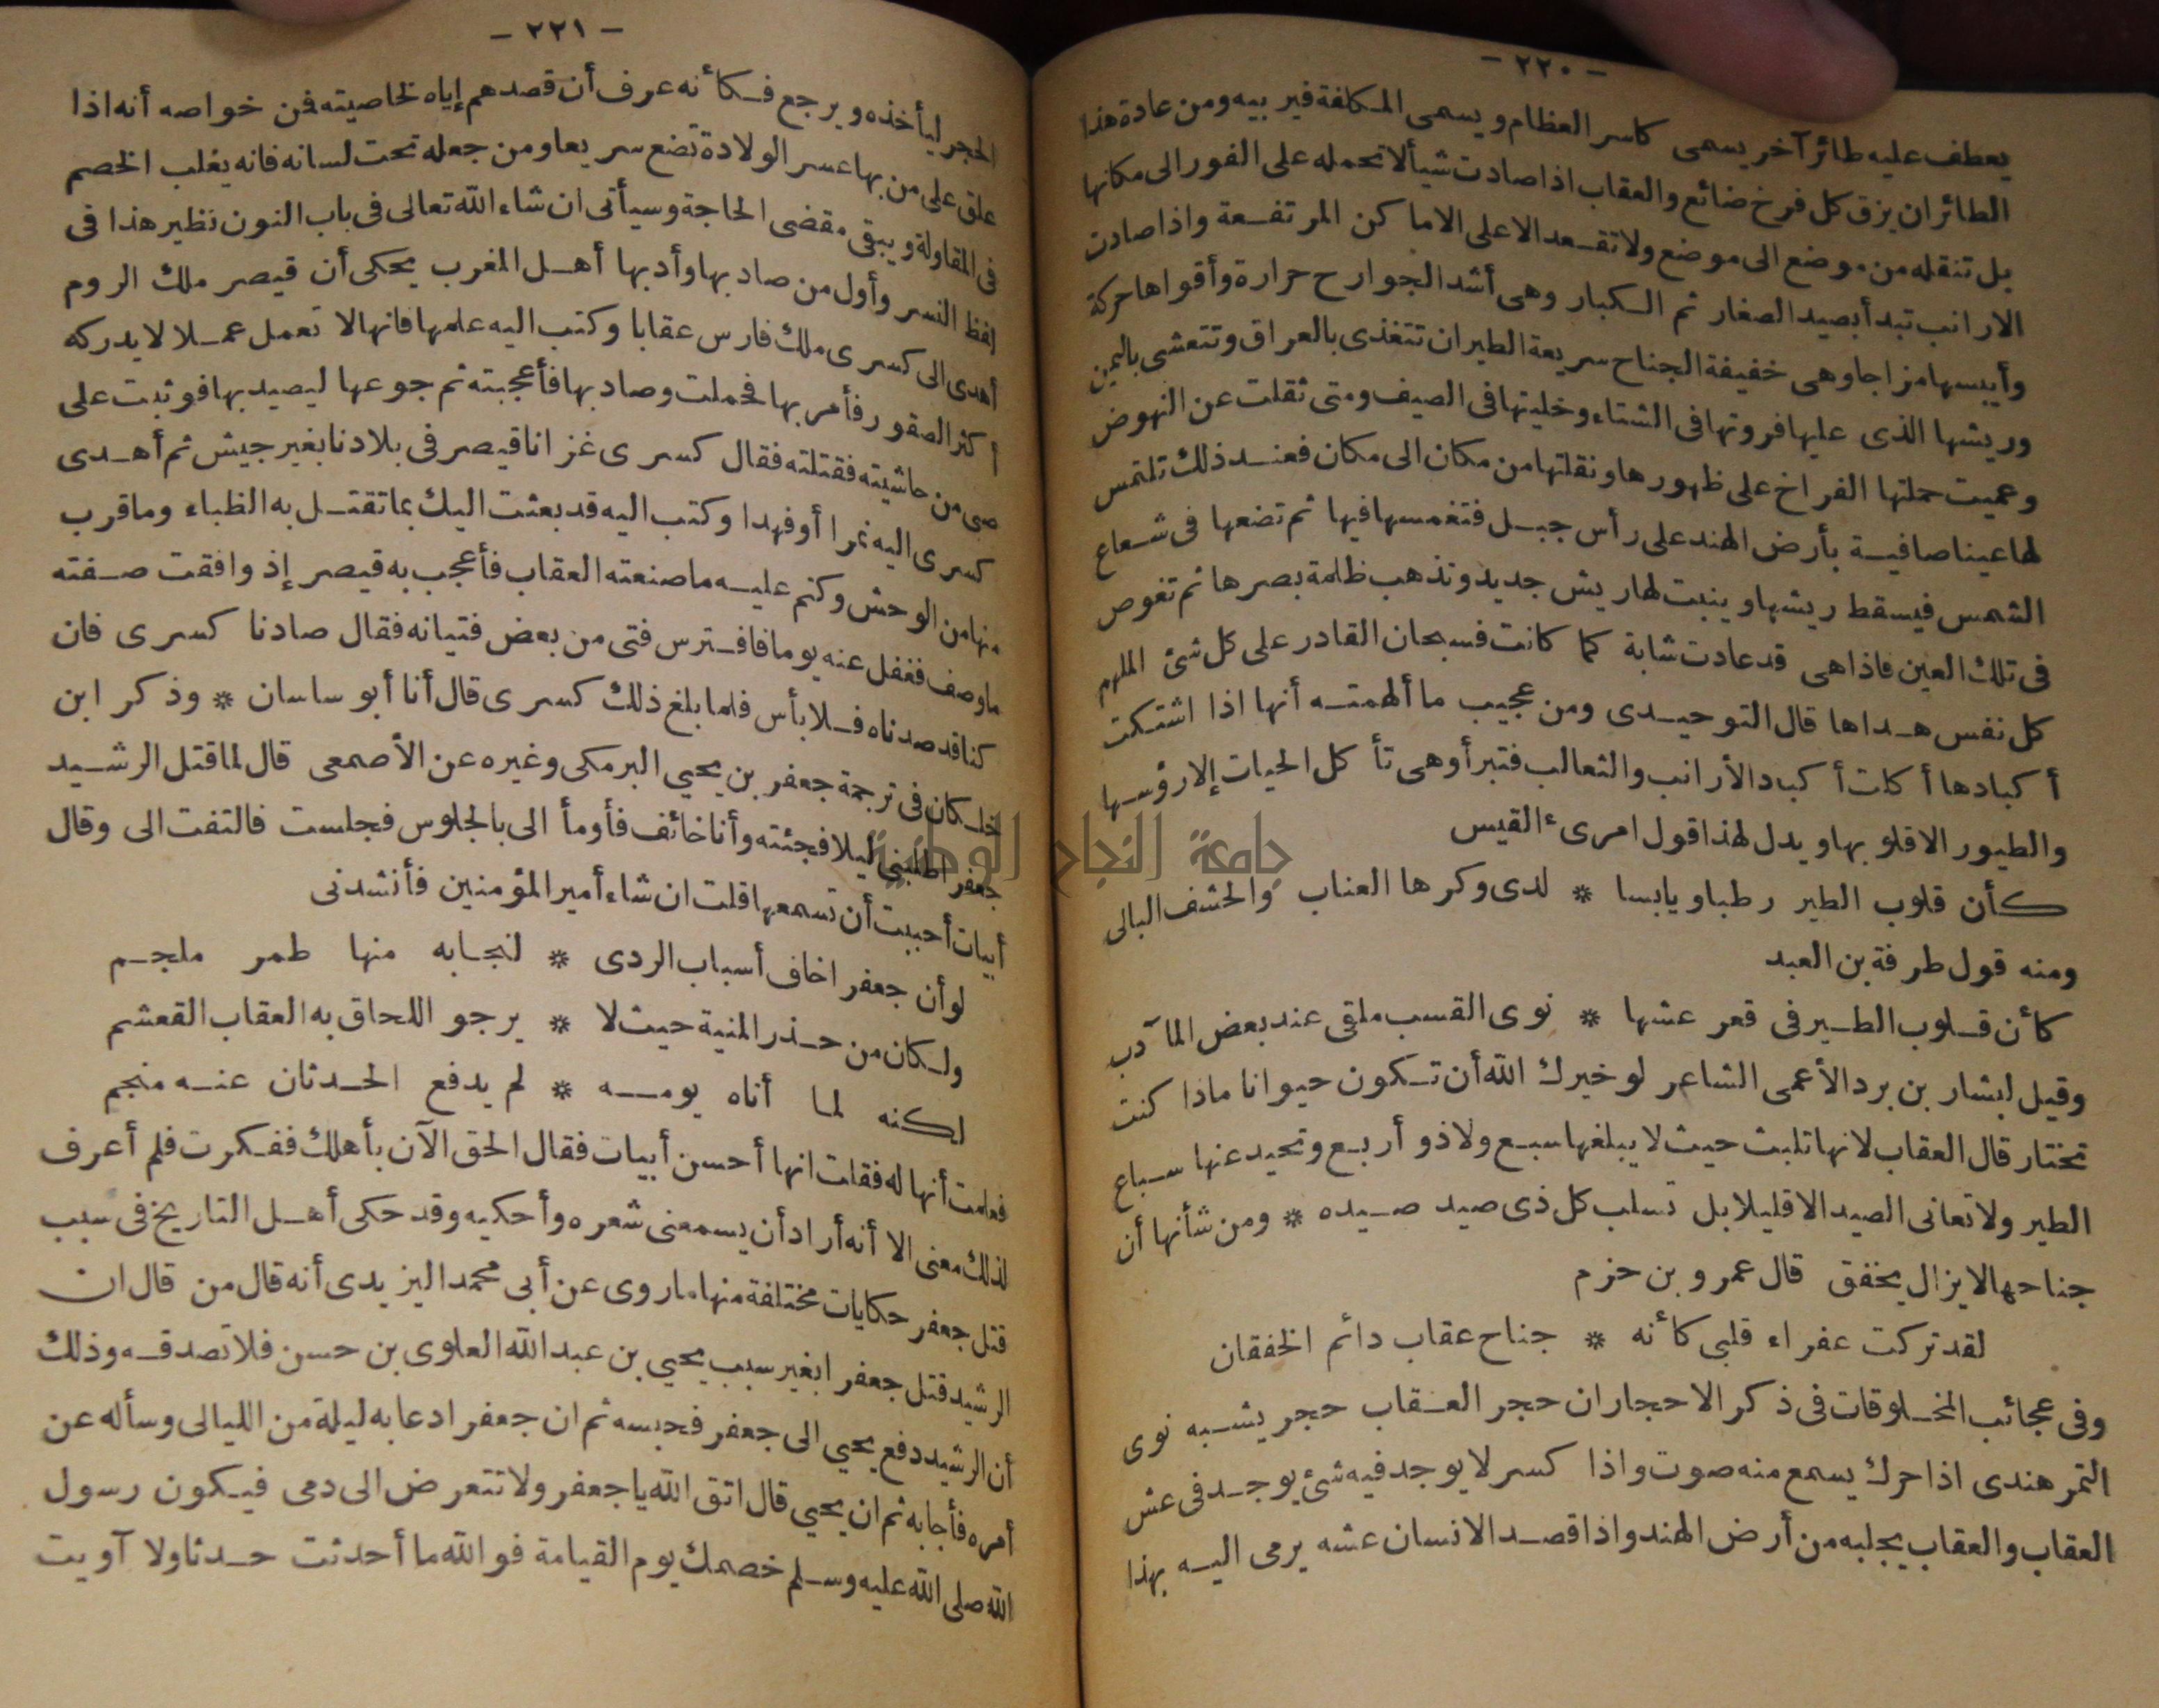 - ٢٢٠ -
يعطف عليه طائر آخر يسمى كاسر العظام ويسمى المكلفة فيربيه ومن عادة هذا
الطائر ان يزق كل فرخ ضائع والعقاب اذا صادت شيأ لا تحمله على الفور الى مكانها
بل تنقله من موضع الى موضع ولا تقعد الا على الاماكن المرتفعة واذا صادت
الارانب تبدأ بصيد الصغار ثم الكبار وهى أشد الجوارح حرارة وأقواها حركة
وأيبسها مزاجا وهى خفيفة الجناح سريعة الطيران تتغذى بالعراق وتتعشى باليمن
وريشها الذى عليها فروتها فى الشتاء وخليتها فى الصيف ومتى ثقلت عن النهوض
وعميت حملتها الفراخ على ظهورها ونقلتها من مكان الى مكان فعند ذلك تلتمس
لها عينا صافية بأرض الهند على رأس جبل فتغمسها فيها ثم تضعها فى شعاع
الشمس فيسقط ريشها وينبت لها ريش جديد وتذهب ظلمة بصرها ثم تغوص
فى تلك العين فاذا هى قد عادت شابة كما كانت فسبحان القادر على كل شئ الملهم
كل نفس هداها قال التوحيدى ومن عجيب ما ألهمته أنها اذا اشتكت
أكبادها أكلت أكباد الأرانب والثعالب فتبرأ وهى تأكل الحيات إلا رؤسها
والطيور الا قلوبها ويدل لهذا قول امرىء القيس
كأن قلوب الطير رطبا ويابسا * لدى وكرها العناب والحشف البالى
ومنه قول طرفة بن العبد
كأن قلوب الطير فى قعر عشها * نوى القسب ملقى عند بعض المآدب
وقيل لبشار بن برد الأعمى الشاعر لو خيرك الله أن تكون حيوانا ماذا كنت
تختار قال العقاب لانها تلبث حيث لا يبلغها سبع ولا ذو أربع وتحيد عنها سباع
الطير ولا تعانى الصيد الا قليلا بل تسلب كل ذى صيد صيده * ومن شأنها أن
جناحها لا يزال يخفق قال عمرو بن حزم
لقد تركت عفراء قلبى كأنه * جناح عقاب دائم الخفقان
وفى عجائب المخلوقات فى ذكر الاحجار ان حجر العقاب حجر يشبه نوى
التمر هندى اذا حرك يسمع منه صوت واذا كسر لا يوجد فيه شئ يوجد فى عش
العقاب والعقاب يجلبه من أرض الهند واذا قصد الانسان عشه يرمى اليه بهذا
- ٢٢١ -
الحجر ليأخذه ويرجع فكأنه عرف أن قصدهم إياه لخاصيته فمن خواصه أنه اذا
علق على من بها عسر الولادة تضع سريعا ومن جعله تحت لسانه فانه يغلب الخصم
فى المقاولة ويبقى مقضى الحاجة وسيأتى ان شاء الله تعالى فى باب النون نظير هذا فى
لفظ النسر وأول من صاد بها وأدبها أهل المغرب يحكى أن قيصر ملك الروم
أهدى الى كسرى ملك فارس عقابا وكتب اليه علمها فانها لا تعمل عملا لا يدركه
أكثر الصقور فأمر بها فحملت وصاد بها فأعجبته ثم جوعها ليصيد بها فوثبت على
صبى من حاشيته فقتلته فقال كسرى غزانا قيصر فى بلادنا بغير جيش ثم أهدى
كسرى اليه نمرا أو فهدا وكتب اليه قد بعثت اليك بما تقتل به الظباء وما قرب
منها من الوحش وكتم عليه ما صنعته العقاب فأعجب به قيصر إذ وافقت صفته
ما وصف فغفل عنه يوما فافترس فتى من بعض فتيانه فقال صادنا كسرى فان
كنا قد صدناه فلا بأس فلما بلغ ذلك كسرى قال أنا أبو ساسان * وذكر ابن
خلكان فى ترجمة جعفر بن يحيي البرمكى وغيره عن الأصمعى قال لما قتل الرشيد
جعفرا طلبنى ليلا فجئته وأنا خائف فأومأ الى بالجلوس فجلست فالتفت الى وقال
أبيات أحببت أن تسمعها قلت ان شاء أمير المؤمنين فأنشدنى
لو أن جعفرا خاف أسباب الردى * لنجا به منها طمر ملجم
ولكان من حذر المنية حيث لا * يرجو اللحاق به العقاب القعشم
لكنه لما أتاه يومه * لم يدفع الحدثان عنه منجم
فعلمت أنها له فقلت انها أحسن أبيات فقال الحق الآن بأهلك ففكرت فلم أعرف
لذلك معنى الا أنه أراد أن يسمعنى شعره وأحكيه وقد حكى أهل التاريخ فى سبب
قتل جعفر حكايات مختلفة منها ما روى عن أبى محمد اليزيدى أنه قال من قال ان
الرشيد قتل جعفرا بغير سبب يحيي بن عبد الله العلوى بن حسن فلا تصدقه وذلك
أن الرشيد دفع يحيي الى جعفر فحبسه ثم ان جعفرا دعا به ليلة من الليالى وسأله عن
أمره فأجابه ثم ان يحيي قال اتق الله يا جعفر ولا تتعرض الى دمى فيكون رسول
الله صلى الله عليه وسلم خصمك يوم القيامة فو الله ما أحدثت حدثا ولا آويت
جامعة النجاح الوطنية